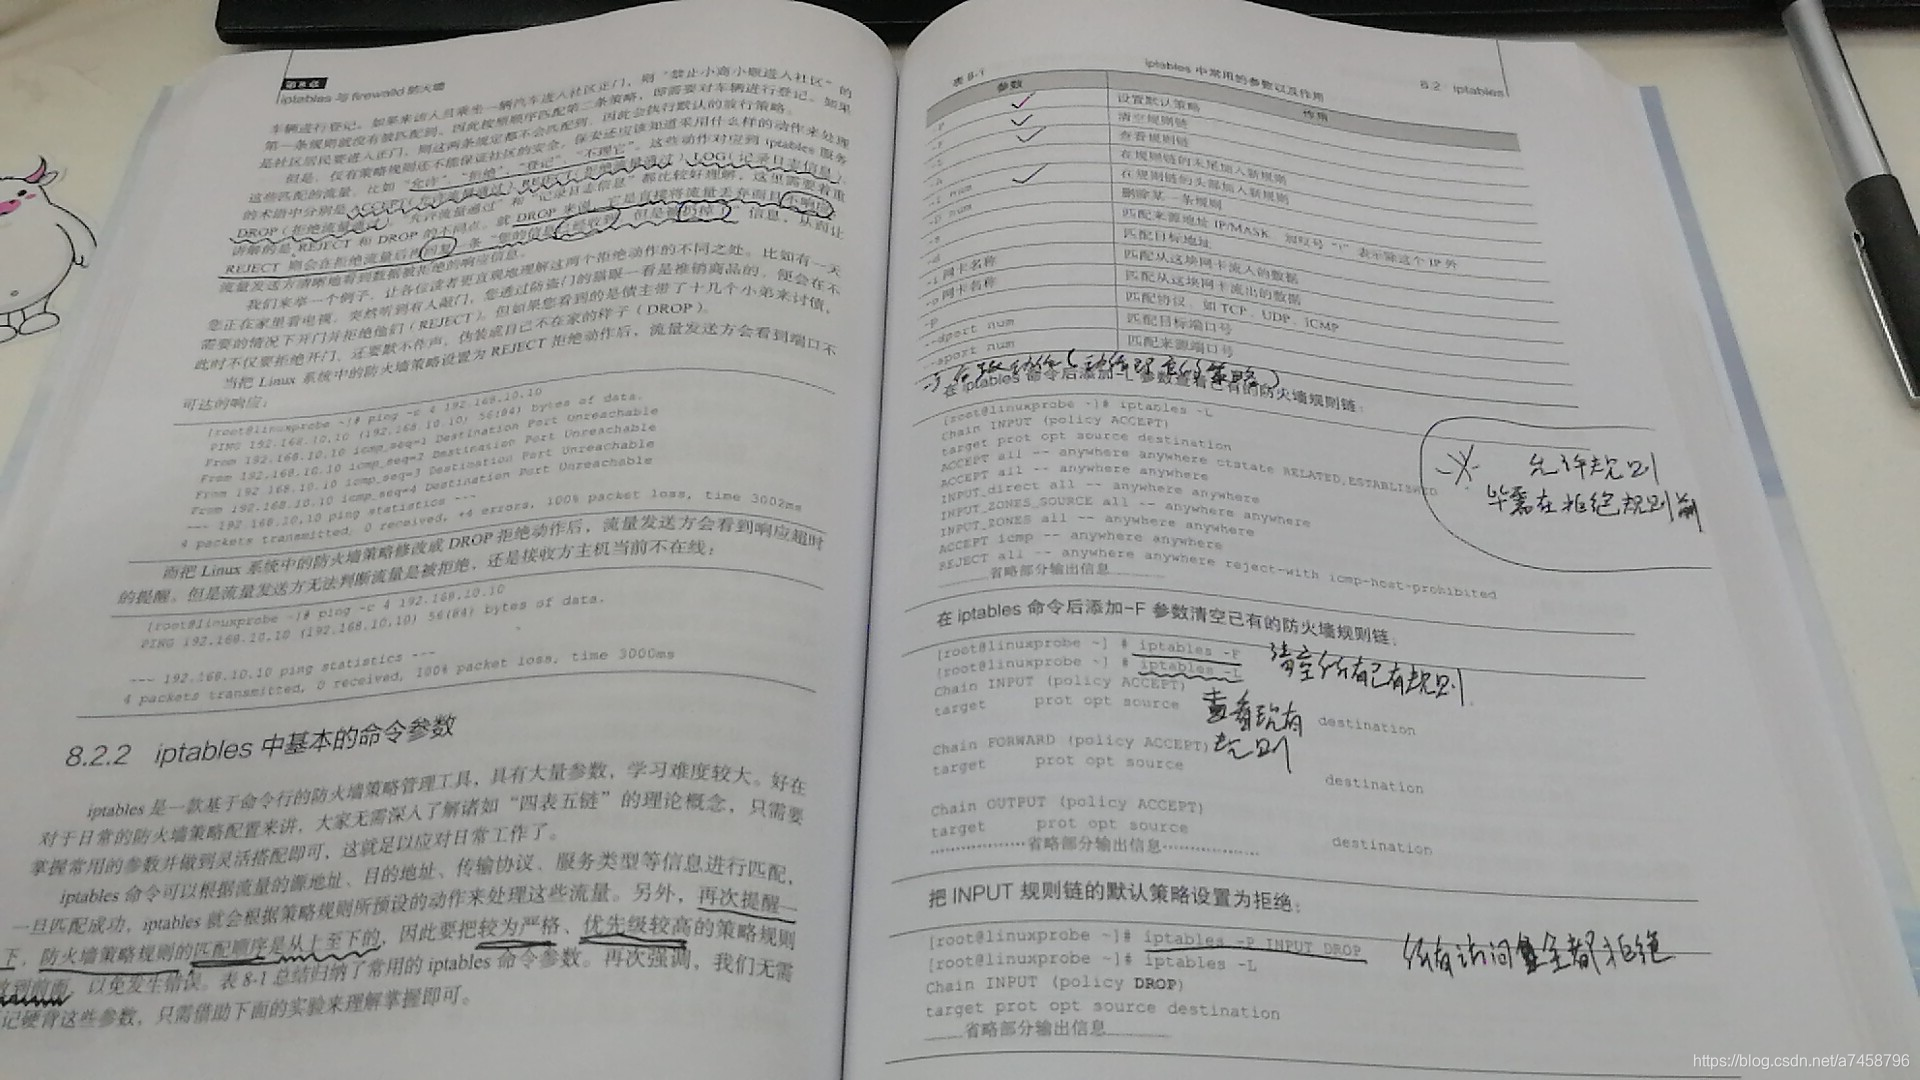 第8章
iptables 与 firewalld 防火墙
车辆进行登记。如果来访人员乘坐一辆汽车进入社区正门，则“禁止小商小贩进入社区”的
第一条规则就没有被匹配到，因此按照顺序匹配第二条策略，即需要对车辆进行登记。如果
是社区居民要进入正门，则这两条规定都不会匹配到，因此会执行默认的放行策略。
但是，仅有策略规则还不能保证社区的安全，保安还应该知道采用什么样的动作来处理
这些匹配的流量，比如“允许”、“拒绝”、“登记”、“不理它”。这些动作对应到 iptables 服务
的术语中分别是 ACCEPT（允许流量通过）、REJECT（拒绝流量通过）、LOG（记录日志信息）、
DROP（拒绝流量通过）。“允许流量通过”和“记录日志信息”都比较好理解，这里需要着重
讲解的是 REJECT 和 DROP 的不同点。就 DROP 来说，它是直接将流量丢弃而且不响应；
REJECT 则会在拒绝流量后再回复一条“您的信息已经收到，但是被扔掉了”信息，从而让
流量发送方清晰地看到数据被拒绝的响应信息。
我们来举一个例子，让各位读者更直观地理解这两个拒绝动作的不同之处。比如有一天
您正在家里看电视，突然听到有人敲门，您透过防盗门的猫眼一看是推销商品的，便会在不
需要的情况下开门并拒绝他们（REJECT）。但如果您看到的是债主带了十几个小弟来讨债，
此时不仅要拒绝开门，还要默不作声，伪装成自己不在家的样子（DROP）。
当把 Linux 系统中的防火墙策略设置为 REJECT 拒绝动作后，流量发送方会看到端口不
可达的响应：
[root@linuxprobe ~]# ping -c 4 192.168.10.10
PING 192.168.10.10 (192.168.10.10) 56(84) bytes of data.
From 192.168.10.10 icmp_seq=1 Destination Port Unreachable
From 192.168.10.10 icmp_seq=2 Destination Port Unreachable
From 192.168.10.10 icmp_seq=3 Destination Port Unreachable
From 192.168.10.10 icmp_seq=4 Destination Port Unreachable
--- 192.168.10.10 ping statistics ---
4 packets transmitted, 0 received, +4 errors, 100% packet loss, time 3002ms
而把 Linux 系统中的防火墙策略修改成 DROP 拒绝动作后，流量发送方会看到响应超时
的提醒。但是流量发送方无法判断流量是被拒绝，还是接收方主机当前不在线：
[root@linuxprobe ~]# ping -c 4 192.168.10.10
PING 192.168.10.10 (192.168.10.10) 56(84) bytes of data.
--- 192.168.10.10 ping statistics ---
4 packets transmitted, 0 received, 100% packet loss, time 3000ms
8.2.2 iptables 中基本的命令参数
iptables 是一款基于命令行的防火墙策略管理工具，具有大量参数，学习难度较大。好在
对于日常的防火墙策略配置来讲，大家无需深入了解诸如“四表五链”的理论概念，只需要
掌握常用的参数并做到灵活搭配即可，这就足以应对日常工作了。
iptables 命令可以根据流量的源地址、目的地址、传输协议、服务类型等信息进行匹配，
一旦匹配成功，iptables 就会根据策略规则所预设的动作来处理这些流量。另外，再次提醒一
下，防火墙策略规则的匹配顺序是从上至下的，因此要把较为严格、优先级较高的策略规则
放到前面，以免发生错误。表 8-1 总结归纳了常用的 iptables 命令参数。再次强调，我们无需
记硬背这些参数，只需借助下面的实验来理解掌握即可。
8.2 iptables
表 8-1 iptables 中常用的参数以及作用
参数 作用
-P 设置默认策略
-F 清空规则链
-L 查看规则链
-A 在规则链的末尾加入新规则
-I num 在规则链的头部加入新规则
-D num 删除某一条规则
-s 匹配来源地址 IP/MASK，加叹号“!”表示除这个 IP 外
-d 匹配目标地址
-i 网卡名称 匹配从这块网卡流入的数据
-o 网卡名称 匹配从这块网卡流出的数据
-p 匹配协议，如 TCP、UDP、ICMP
--dport num 匹配目标端口号
--sport num 匹配来源端口号
在 iptables 命令后添加-L 参数查看已有的防火墙规则链：
[root@linuxprobe ~]# iptables -L
Chain INPUT (policy ACCEPT)
target prot opt source destination
ACCEPT all -- anywhere anywhere ctstate RELATED,ESTABLISHED
ACCEPT all -- anywhere anywhere
INPUT_direct all -- anywhere anywhere
INPUT_ZONES_SOURCE all -- anywhere anywhere
INPUT_ZONES all -- anywhere anywhere
ACCEPT icmp -- anywhere anywhere
REJECT all -- anywhere anywhere reject-with icmp-host-prohibited
………省略部分输出信息………
允许规则
毕需在拒绝规则前
在 iptables 命令后添加-F 参数清空已有的防火墙规则链：
[root@linuxprobe ~] # iptables -F 清空所有已有规则
[root@linuxprobe ~] # iptables -L
Chain INPUT (policy ACCEPT) 查看现有规则
target prot opt source destination
Chain FORWARD (policy ACCEPT)
target prot opt source destination
Chain OUTPUT (policy ACCEPT)
target prot opt source destination
………………省略部分输出信息………………
把 INPUT 规则链的默认策略设置为拒绝：
[root@linuxprobe ~]# iptables -P INPUT DROP 所有访问全都拒绝
[root@linuxprobe ~]# iptables -L
Chain INPUT (policy DROP)
target prot opt source destination
………省略部分输出信息………
https://blog.csdn.net/a7458796